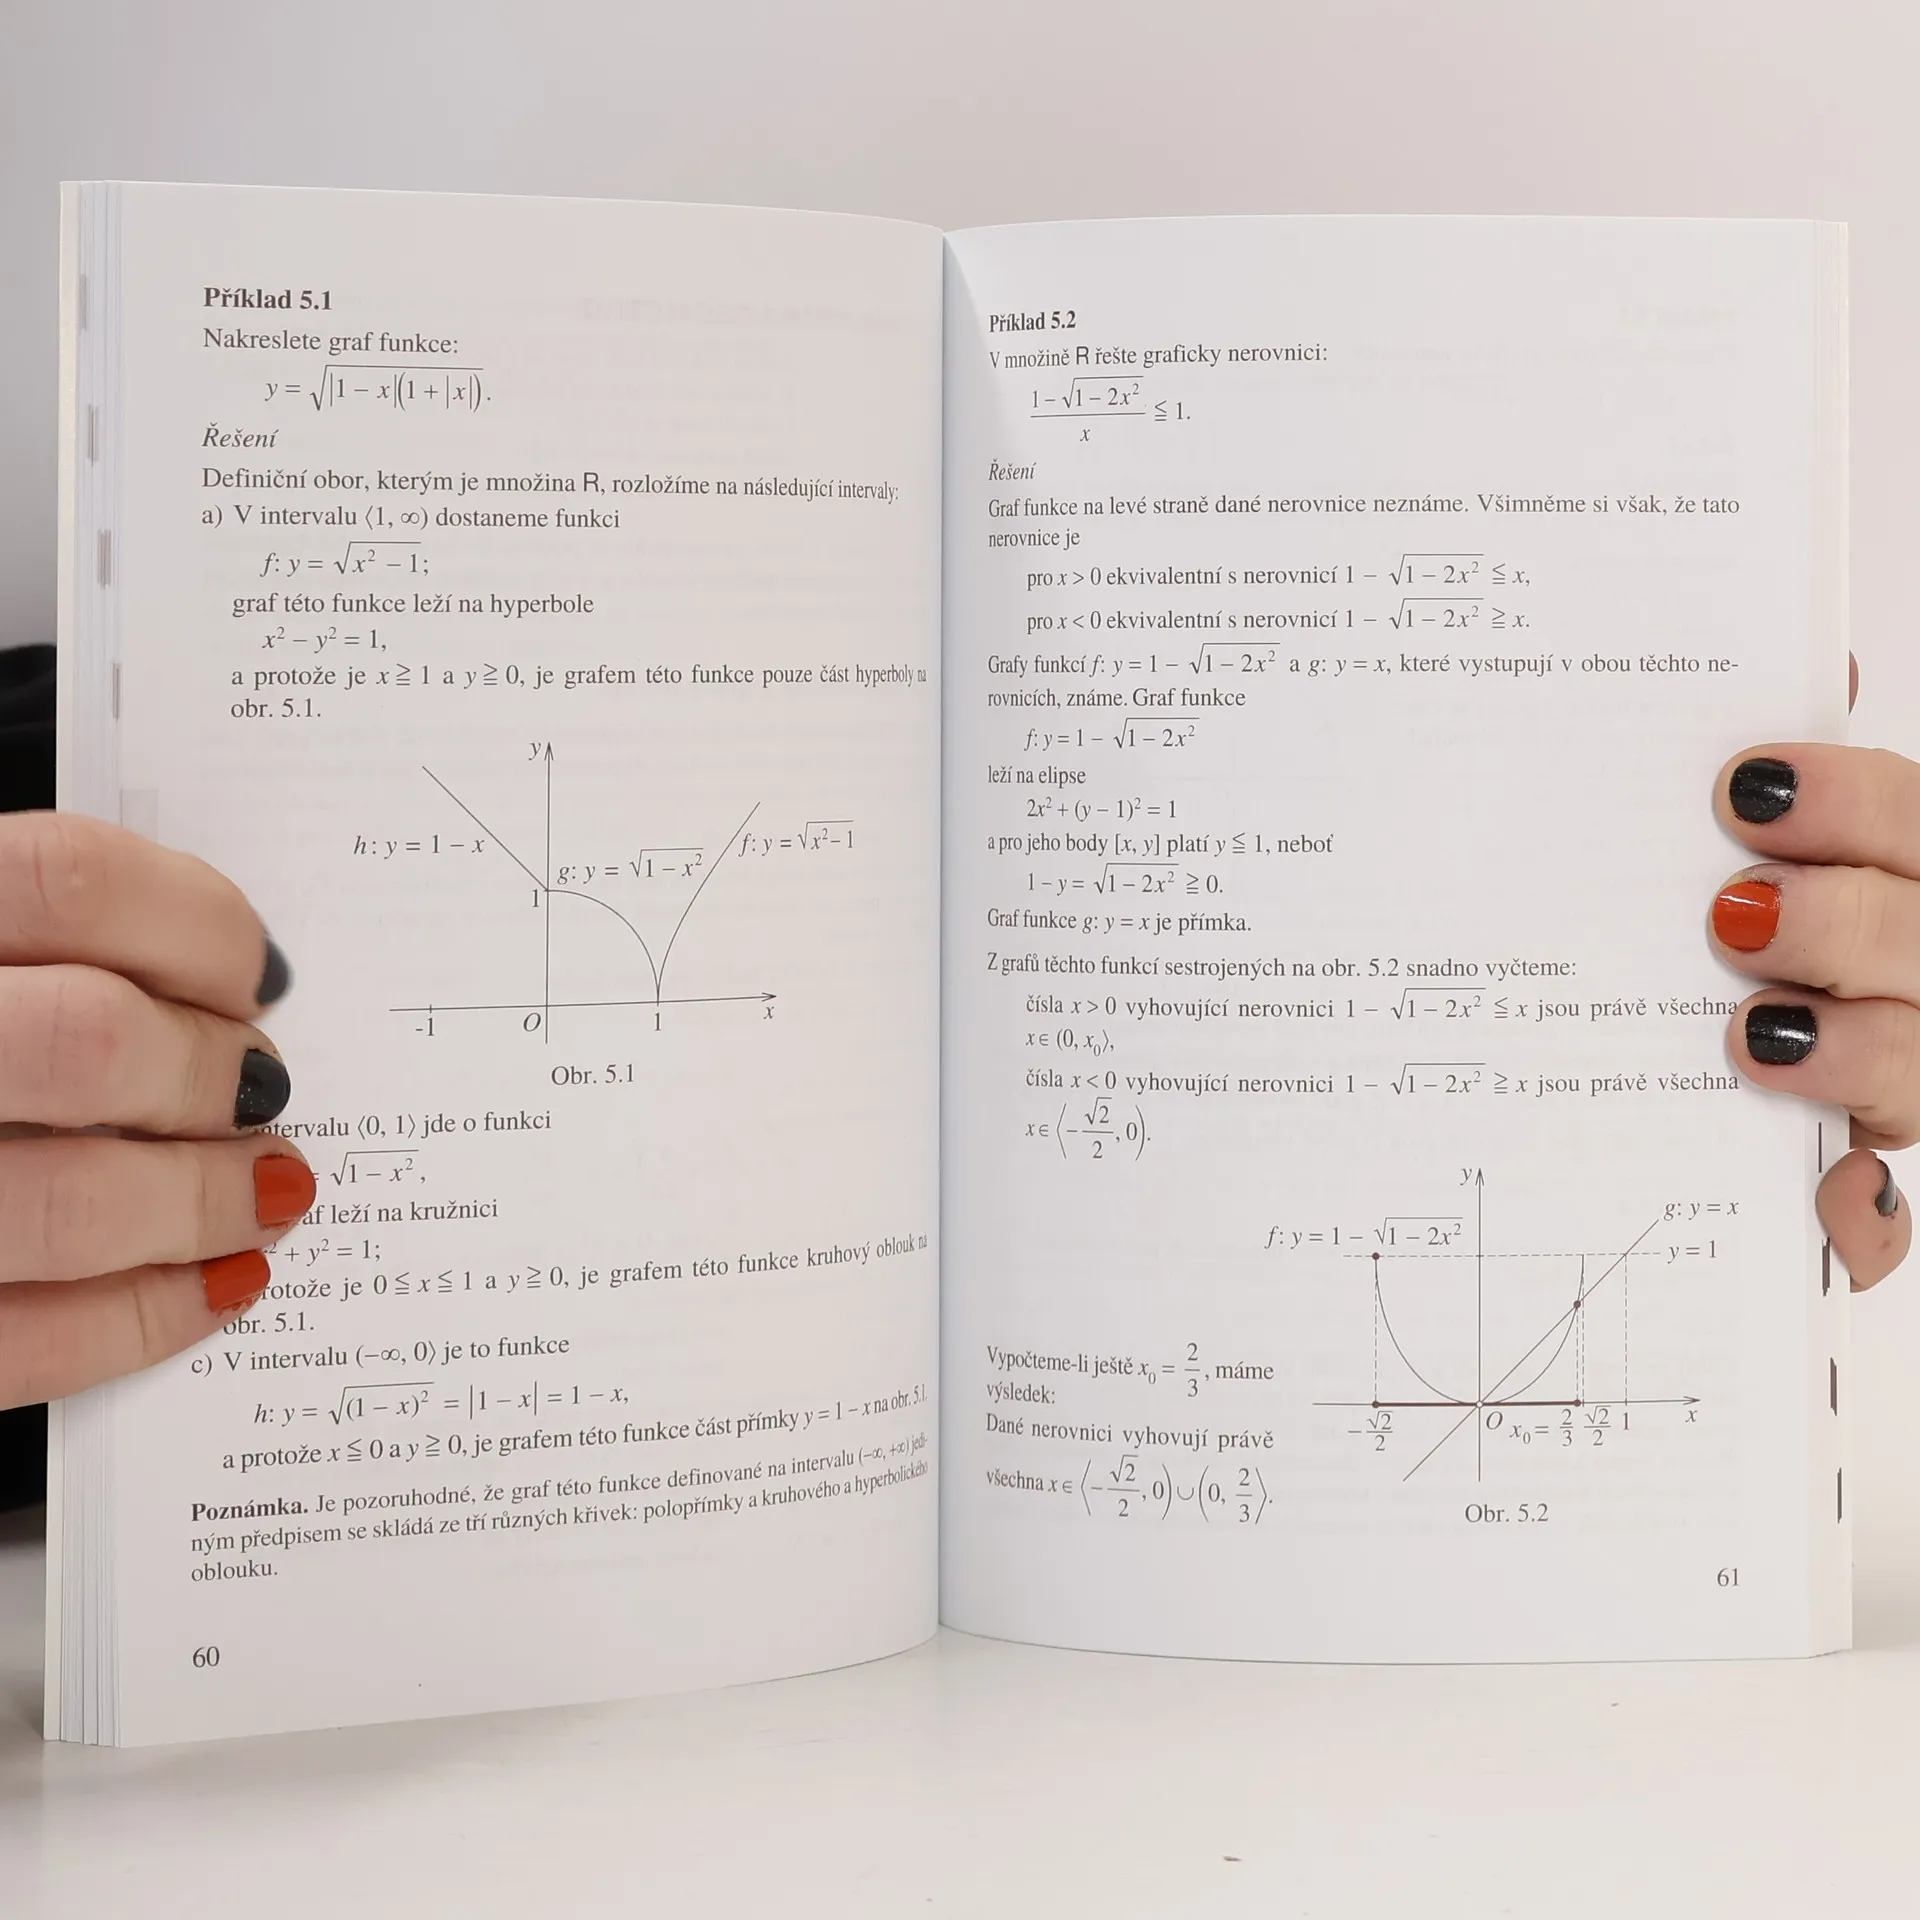 Příklad 5.1
Nakreslete graf funkce:
y = √|1 − x|(1 + |x|).
Řešení
Definiční obor, kterým je množina R, rozložíme na následující intervaly:
a) V intervalu ⟨1, ∞) dostaneme funkci
f: y = √x² − 1;
graf této funkce leží na hyperbole
x² − y² = 1,
a protože je x ≧ 1 a y ≧ 0, je grafem této funkce pouze část hyperboly na
obr. 5.1.
y
h: y = 1 − x
g: y = √1 − x²
f: y = √x² − 1
1
-1
O
1
x
Obr. 5.1
intervalu ⟨0, 1⟩ jde o funkci
= √1 − x²,
leží na kružnici
² + y² = 1;
protože je 0 ≦ x ≦ 1 a y ≧ 0, je grafem této funkce kruhový oblouk na
obr. 5.1.
c) V intervalu (−∞, 0⟩ je to funkce
h: y = √(1 − x)² = |1 − x| = 1 − x,
a protože x ≦ 0 a y ≧ 0, je grafem této funkce část přímky y = 1 − x na obr. 5.1.
Poznámka. Je pozoruhodné, že graf této funkce definované na intervalu (−∞, +∞) jedi-
ným předpisem se skládá ze tří různých křivek: polopřímky a kruhového a hyperbolického
oblouku.
60
Příklad 5.2
V množině R řešte graficky nerovnici:
(1 − √1 − 2x²)/x ≦ 1.
Řešení
Graf funkce na levé straně dané nerovnice neznáme. Všimněme si však, že tato
nerovnice je
pro x > 0 ekvivalentní s nerovnicí 1 − √1 − 2x² ≦ x,
pro x < 0 ekvivalentní s nerovnicí 1 − √1 − 2x² ≧ x.
Grafy funkcí f: y = 1 − √1 − 2x² a g: y = x, které vystupují v obou těchto ne-
rovnicích, známe. Graf funkce
f: y = 1 − √1 − 2x²
leží na elipse
2x² + (y − 1)² = 1
a pro jeho body [x, y] platí y ≦ 1, neboť
1 − y = √1 − 2x² ≧ 0.
Graf funkce g: y = x je přímka.
Z grafů těchto funkcí sestrojených na obr. 5.2 snadno vyčteme:
čísla x > 0 vyhovující nerovnici 1 − √1 − 2x² ≦ x jsou právě všechna
x ∈ (0, x₀⟩,
čísla x < 0 vyhovující nerovnici 1 − √1 − 2x² ≧ x jsou právě všechna
x ∈ ⟨−√2/2, 0).
Vypočteme-li ještě x₀ = 2/3, máme
výsledek:
Dané nerovnici vyhovují právě
všechna x ∈ ⟨−√2/2, 0) ∪ (0, 2/3⟩.
y
g: y = x
f: y = 1 − √1 − 2x²
y = 1
−√2/2
O
x₀ = 2/3
√2/2
1
x
Obr. 5.2
61